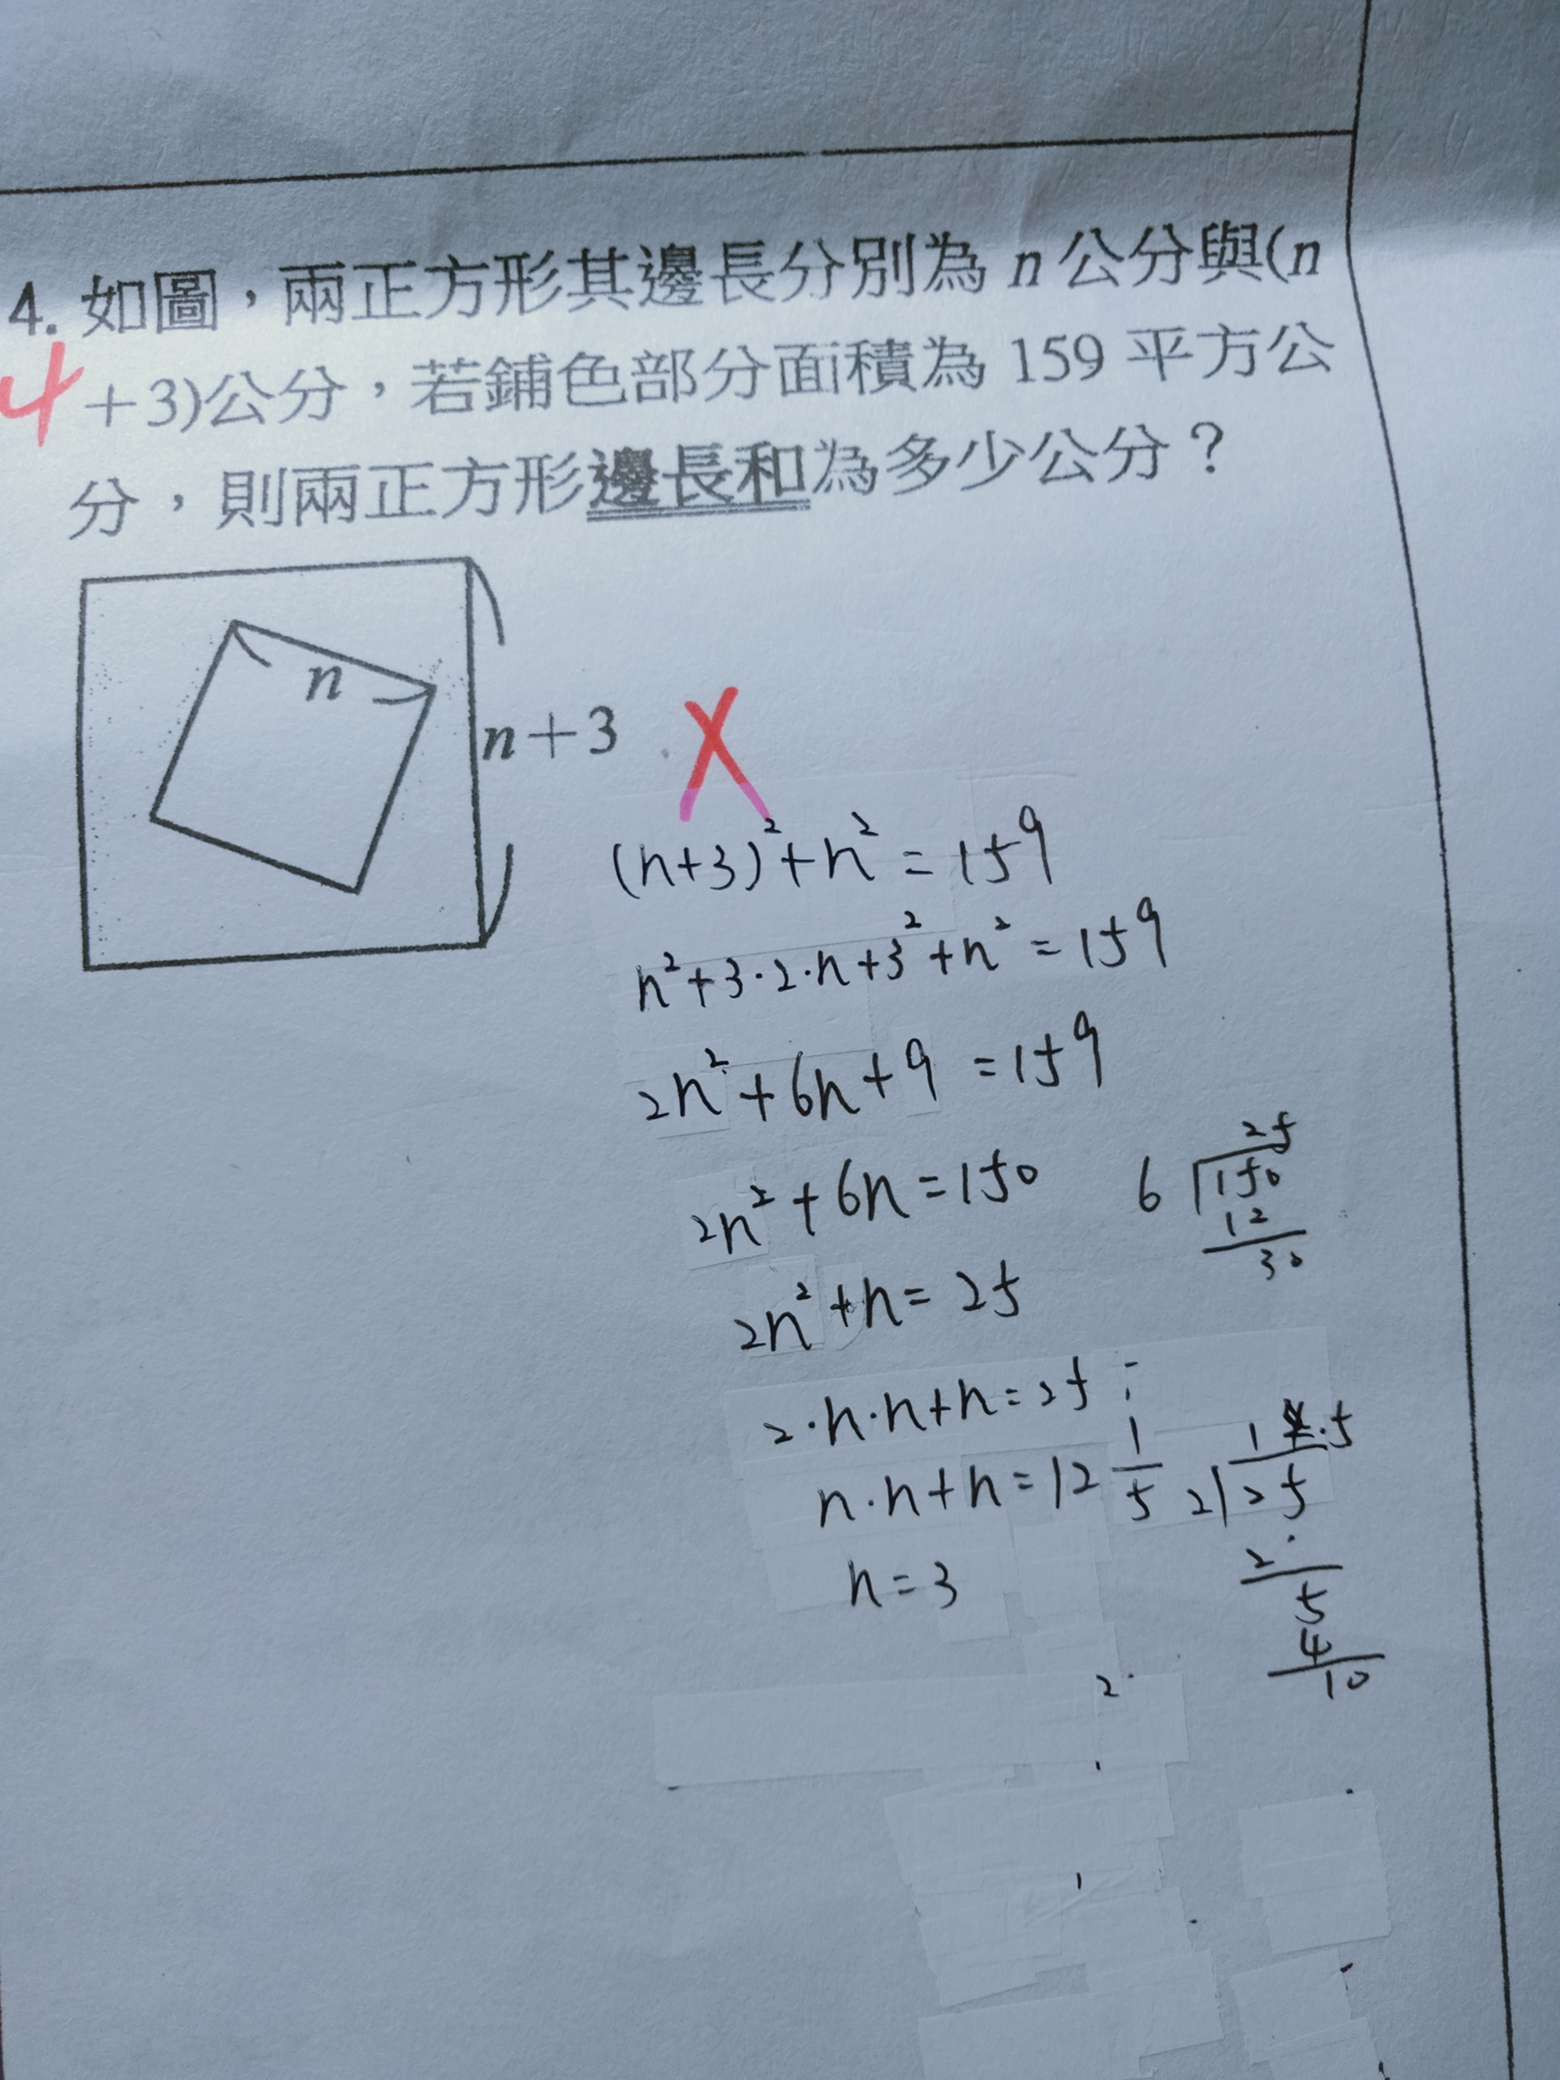 4. 如圖，兩正方形其邊長分別為 n 公分與(n
4
+3)公分，若鋪色部分面積為 159 平方公
分，則兩正方形邊長和為多少公分？
n
n+3
X
(n+3)²+n²=159
n²+3·2·n+3²+n²=159
2n²+6n+9=159
2n²+6n=150
25
6
150
12
30
2n²+n=25
2·n·n+n=25
n·n+n=12 1/5
2
25
2
5
4
10
n=3
2